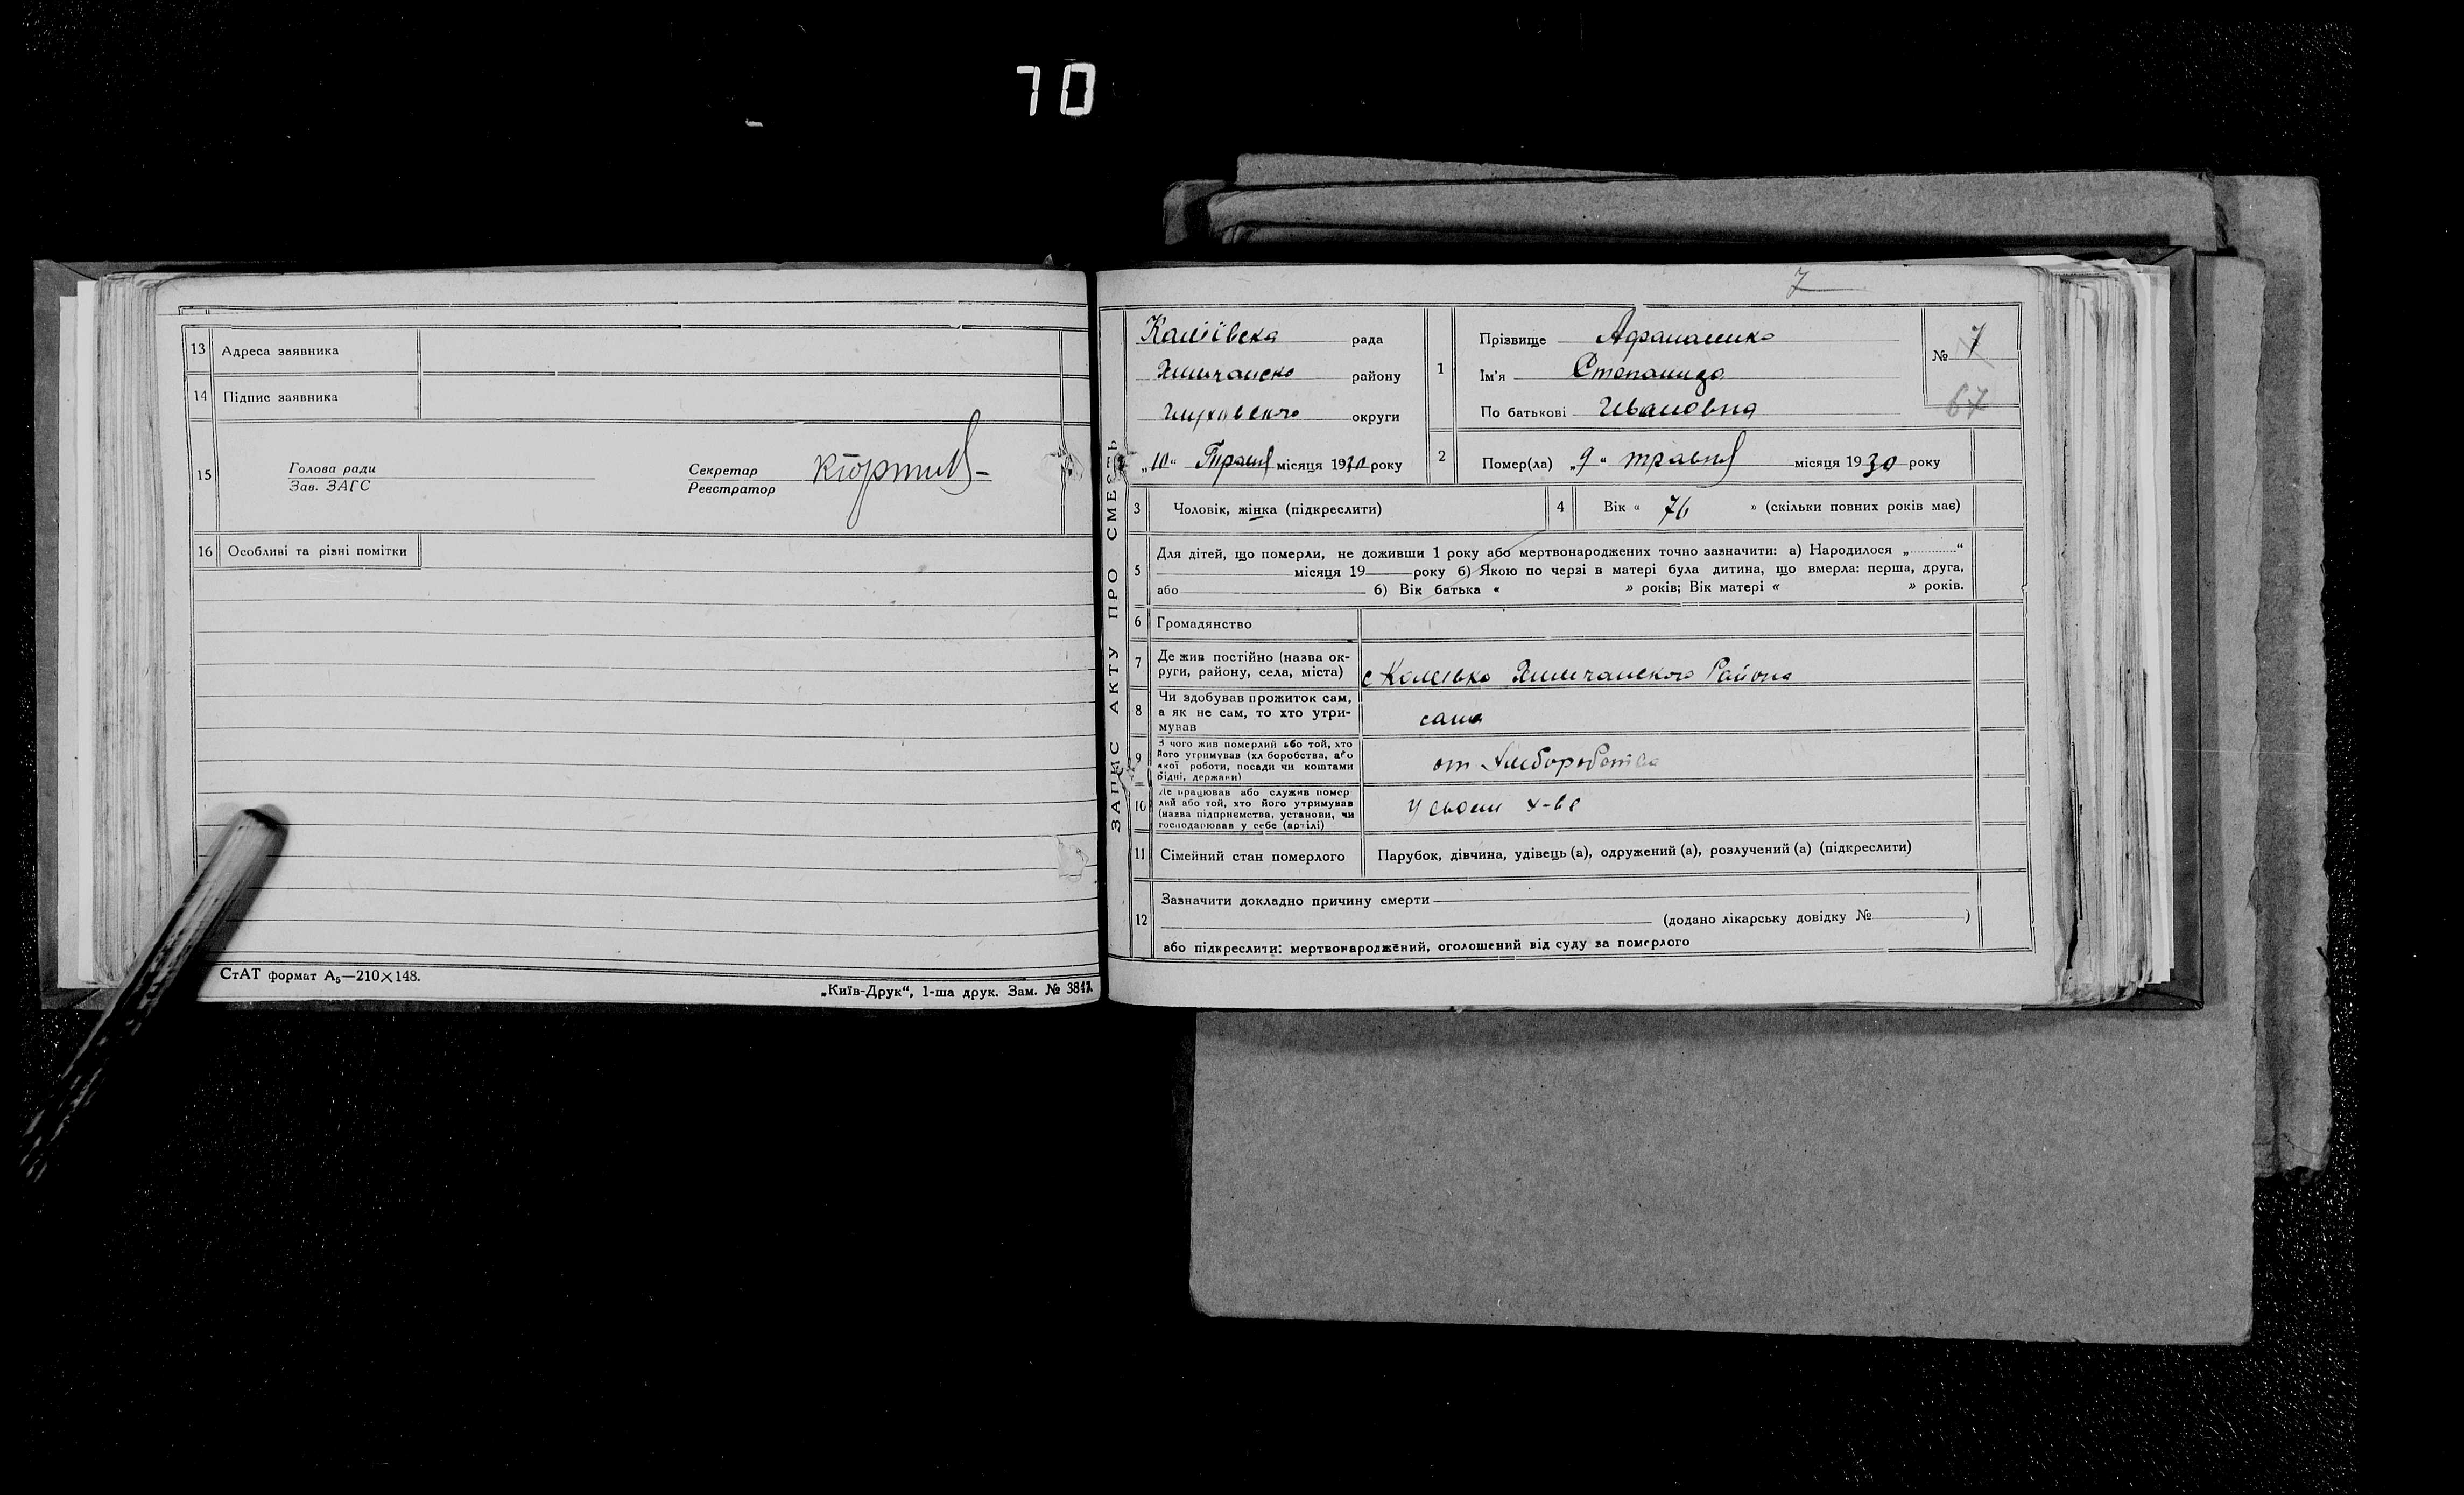 70
13 Адреса заявника
14 Підпис заявника
15 Голова ради
Зав. ЗАГС
Секретар
Реєстратор
16 Особливі та різні помітки
СтАТ формат А₅—210×148.
„Київ-Друк“, 1-ша друк. Зам. № 3847.
7
ЗАПИС АКТУ ПРО СМЕРТЬ
рада
району
округи
„10“ місяця 1930 року
1 Прізвище Афанасенко
Ім'я Степанида
По батькові Ивановна
№ 7
67
2 Помер(ла) „9“ травня місяця 1930 року
3 Чоловік, жінка (підкреслити)
4 Вік « 76 » (скільки повних років має)
5 Для дітей, що померли, не доживши 1 року або мертвонароджених точно зазначити: а) Народилося „ “
місяця 19 року б) Якою по черзі в матері була дитина, що вмерла: перша, друга,
або б) Вік батька « » років; Вік матері « » років.
6 Громадянство
7 Де жив постійно (назва ок-
руги, району, села, міста) с Района
8 Чи здобував прожиток сам,
а як не сам, то хто утри-
мував сама
9 З чого жив померлий або той, хто
його утримував (хл боробства, або
якої роботи, посади чи коштами
рідні, держави) от хлеборобства
10 Де працював або служив помер
лий або той, хто його утримував
(назва підприємства, установи, чи
господарював у себе (артілі) у своем х-ве
11 Сімейний стан померлого Парубок, дівчина, удівець (а), одружений (а), розлучений (а) (підкреслити)
12 Зазначити докладно причину смерти
(додано лікарську довідку № )
або підкреслити: мертвонароджений, оголошений від суду за померлого